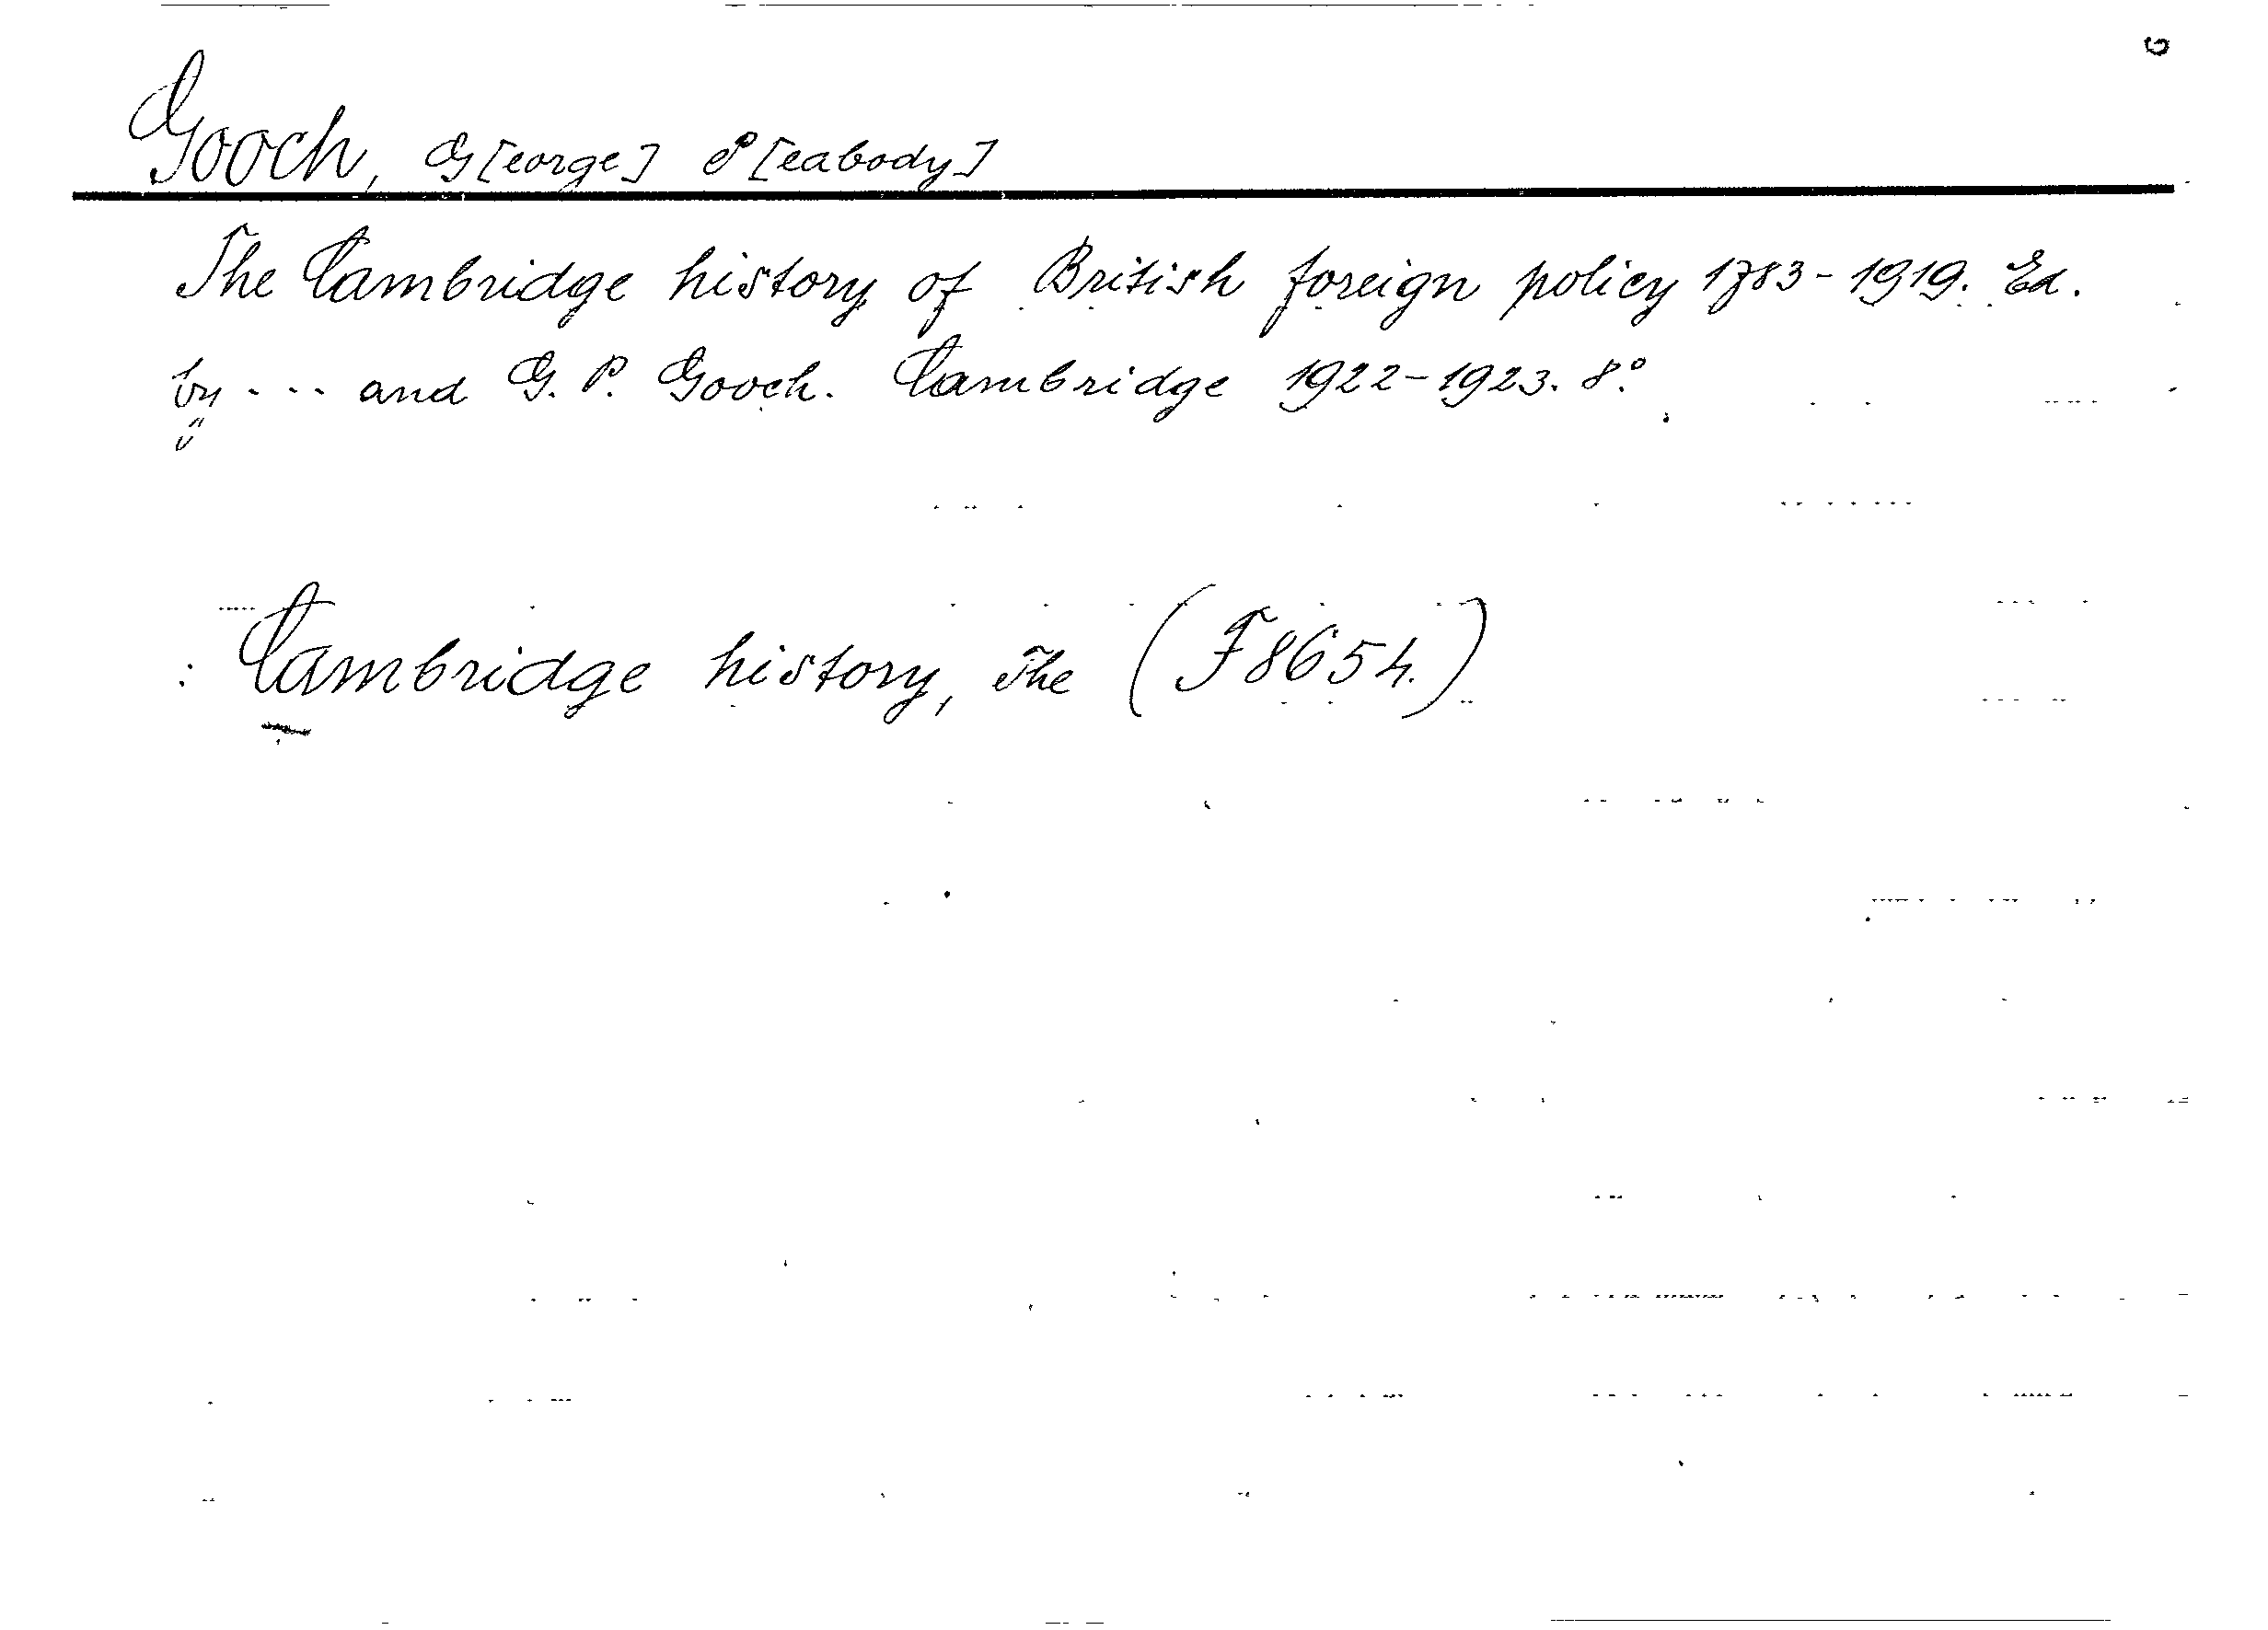 Gooch, G[eorge] P[eabody]
The Cambridge history of British foreign policy 1783-1919. Ed.
by ... and G. P. Gooch. Cambridge 1922-1923. 8°.
: Cambridge history, The (F8654.)